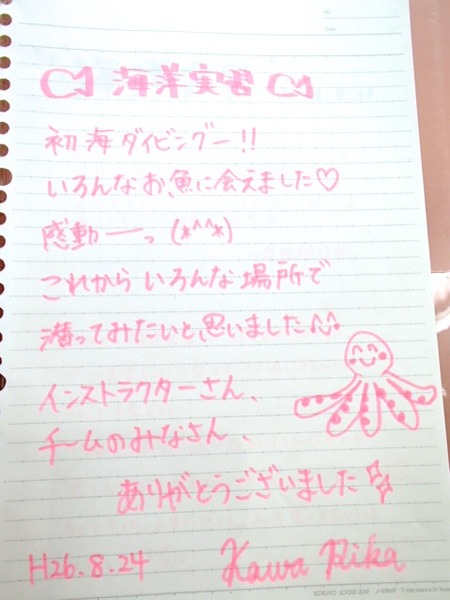 No.
Date
C1 海洋実習 C1
初海ダイビングー!!
いろんなお魚に会えました♡
感動ーっ (*^^*)
これからいろんな場所で
潜ってみたいと思いました♪
インストラクターさん、
チームのみなさん、
ありがとうございました
H26.8.24 Kawa Rika
KOKUYO LOOSE-LEAF